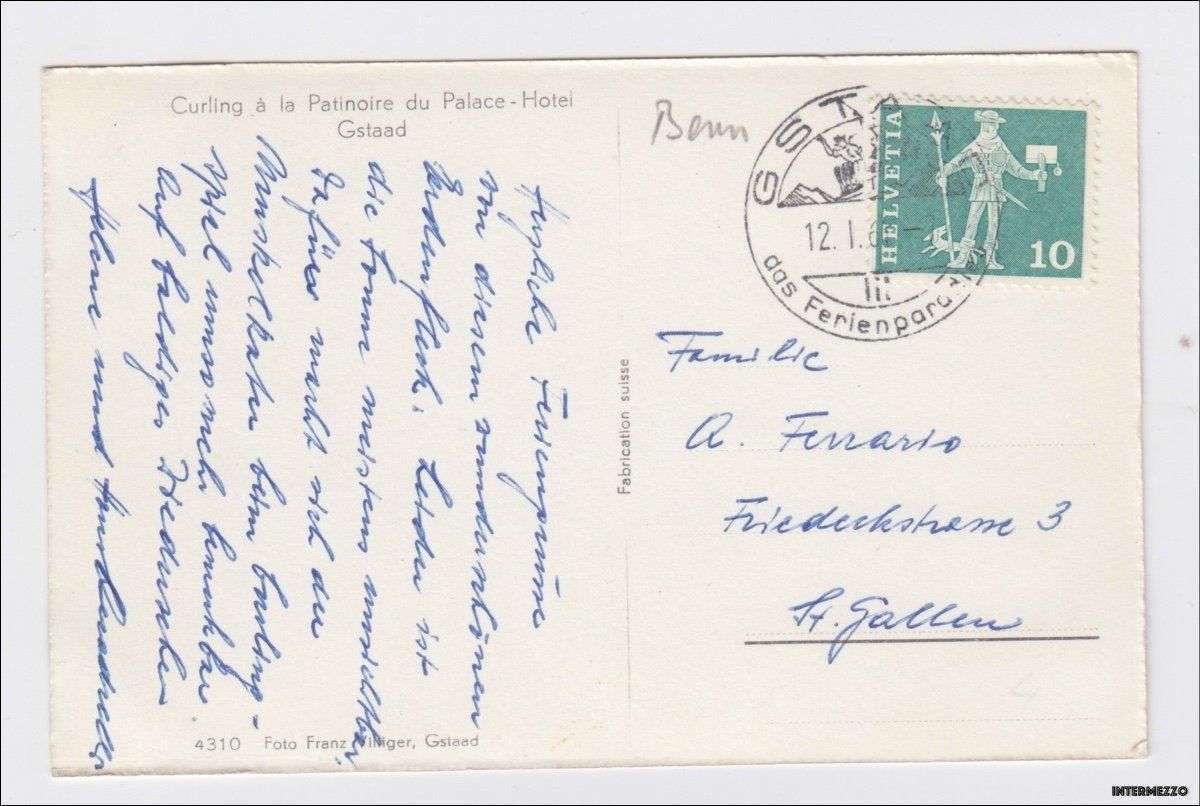 Curling à la Patinoire du Palace-Hotel
Gstaad
Herzliche Feriengrüsse
von diesem wunderschönen
Erdenfleck. Leider ist
die Sonne meistens unsichtbar.
Dafür macht sich der
Muskelkater beim Curling-
spiel umso mehr bemerkbar.
Auf baldiges Wiedersehen
und
4310 Foto Franz Villiger, Gstaad
Fabrication suisse
Bern
GSTAAD
12. I. 6
das Ferienparadies
HELVETIA
10
Familie
A. Ferrario
Friedeckstrasse 3
St. Gallen
4
INTERMEZZO